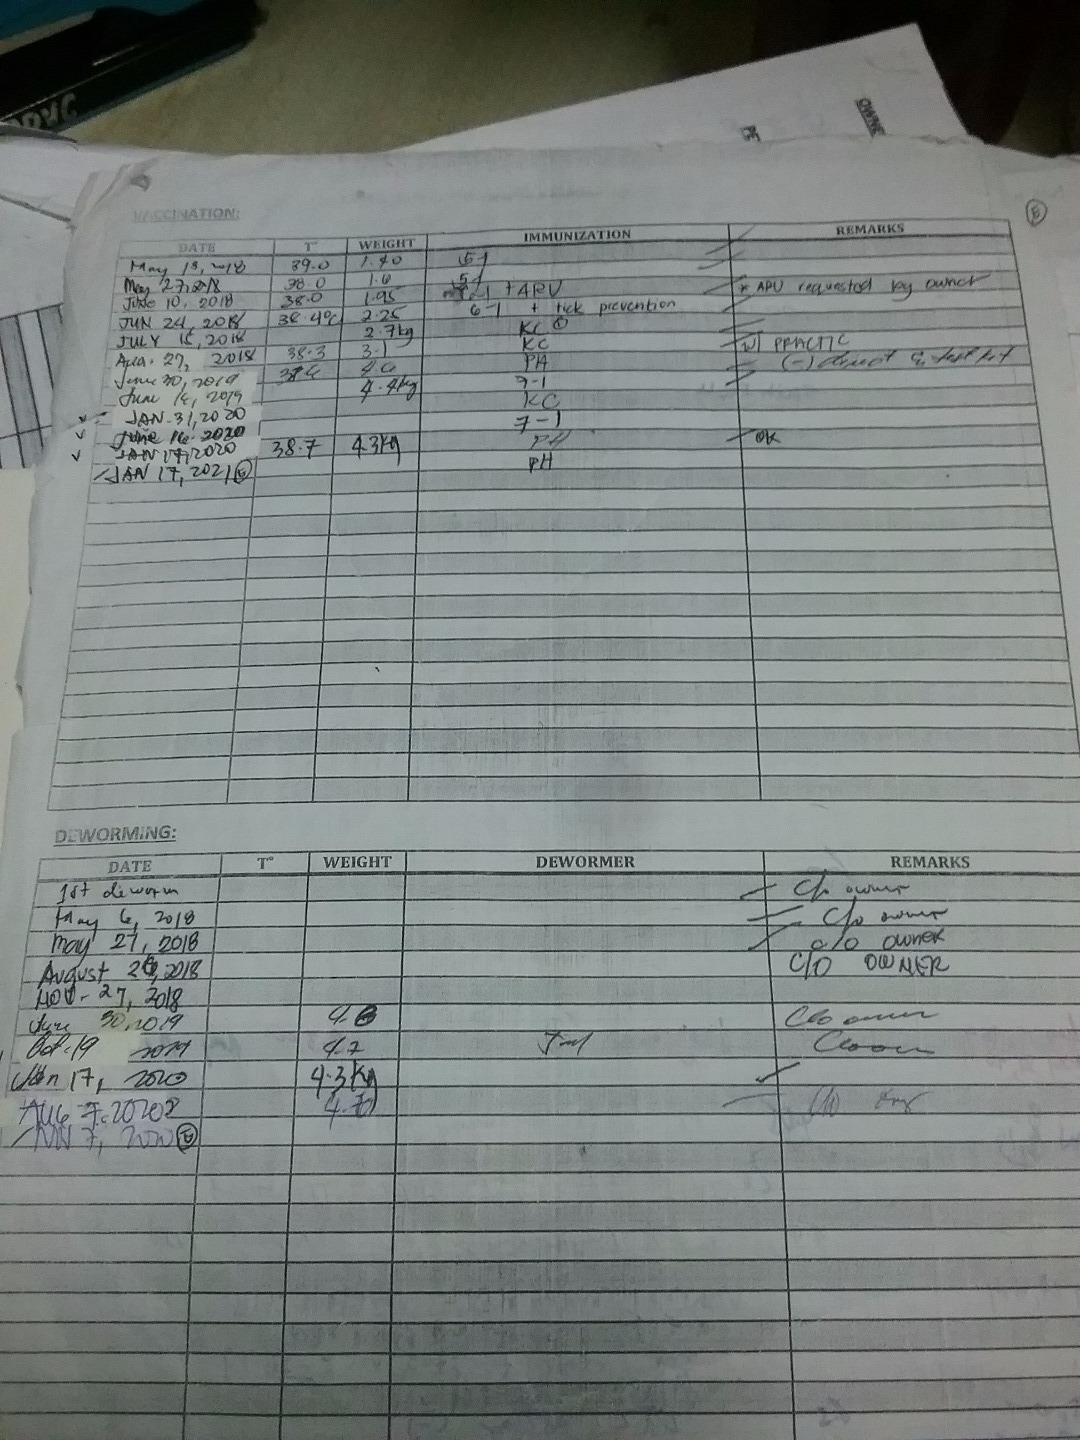 OWNE
PE
VACCINATION:
DATE T° WEIGHT IMMUNIZATION REMARKS
May 13, 2018 39.0 1.40 5-1
May 27, 2018 38.0 1.6 5-1
June 10, 2018 38.0 1.95 + ARV * ARV requested by owner
JUN 24, 2018 38.4°C 2.25 6-1 + tick prevention
JULY 15, 2018 2.7kg KC
2018 38.3 3.1 KC W/ PRACTIC
June 30, 2019 4.0 PH (-)
June 2019 4.4kg 7-1
JAN. 31, 2020 KC
June 16 2020 7-1
JAN 17, 2020 38.7 4.3kg PH OK
JAN 17, 2021 E PH
E
DEWORMING:
DATE T° WEIGHT DEWORMER REMARKS
1st deworm c/o owner
May 6, 2018 c/o owner
May 27, 2018 c/o owner
August 26, 2018 C/O OWNER
NOV - 27, 2018
June 30, 2019 4.6 c/o owner
Oct. 19 2019 4.2
Jan 17, 2020 4.3kg
AUG 7, 2020 4.7 c/o
7, 2020 E